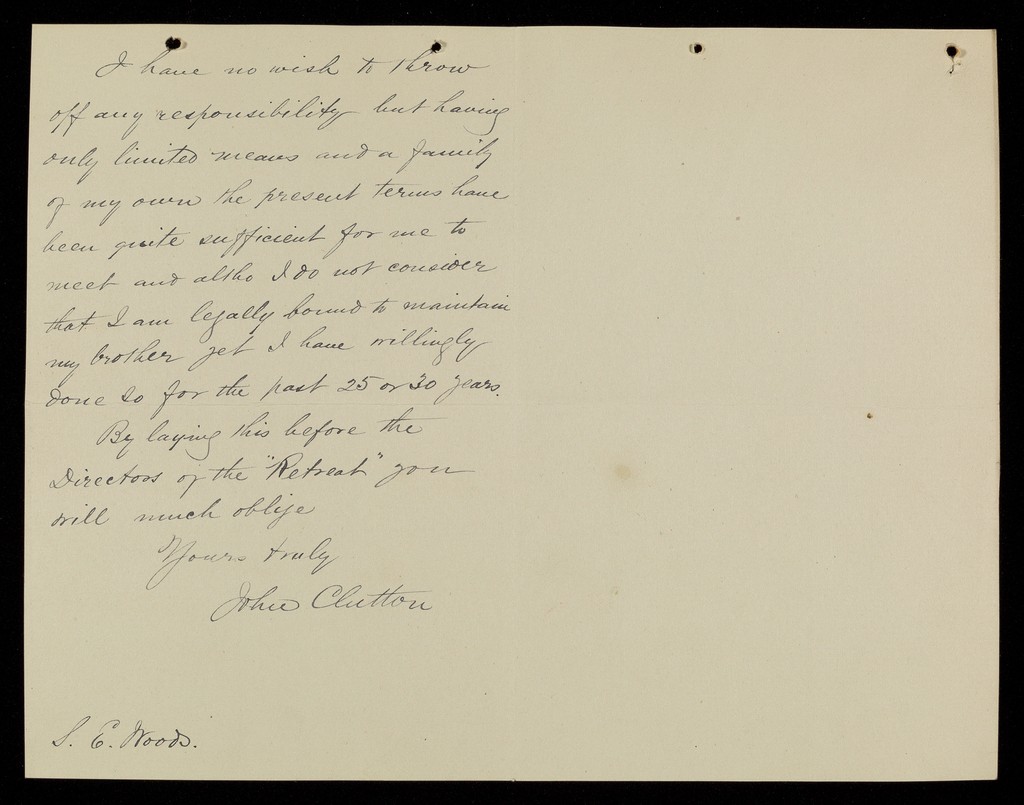 I have no wish to throw
off any responsibility but having
only limited means and a family
of my own the present terms have
been quite sufficient for me to
meet and altho I do not consider
that I am legally bound to maintain
my brother yet I have willingly
done so for the past 25 or 30 years.
By laying this before the
Directors of the "Retreat" you
will much oblige
Yours truly
John Clutton
S. E. Woods.